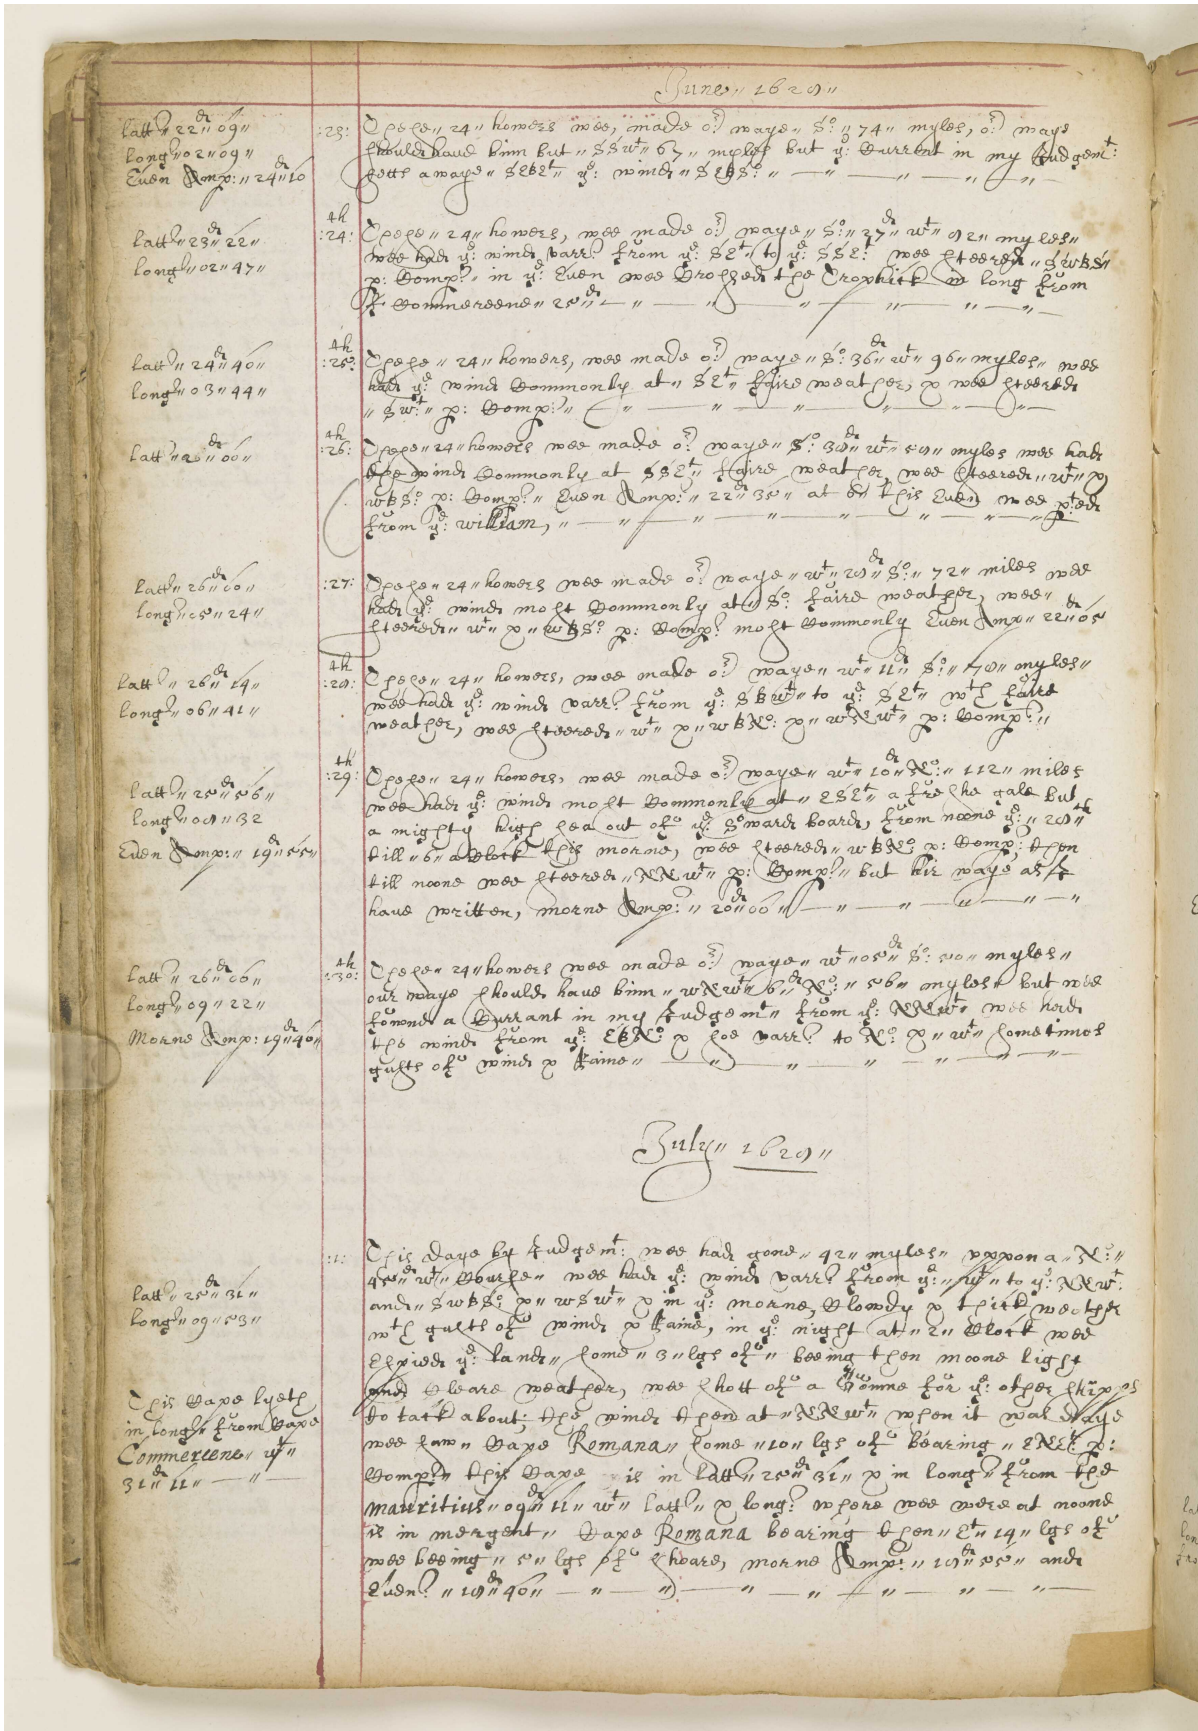 June 1629
latt 22d 09
long 02 09
Even Amp: 24d 10
:23: These 24 howers wee, made or waye So 74 myles, or waye
should haue binn but SSWt 67 myles but ye: Current in my Judgemt:
setts awaye SEBEt ye: wind SEBSo:
latt 23d 22
long 02 47
th
:24: These 24 howers, wee made or waye So: 27d wt 92 myles
wee had ye: wind varr from ye: SEt to ye: SSEt wee steered SWBS
p: Comp: in ye: Even wee Crossed the Tropick in long from
Commereene 25d
latt 24d 40
long 03 44
th
:25: These 24 howers, wee made or waye So: 36d wt 96 myles wee
had ye: wind Commonly at SEt faire weather, & wee steered
SWt p: Comp:
latt 26d 00
th
:26: These 24 howers wee made or waye So 39d wt 59 myles wee had
the wind Commonly at SSEt faire weather, wee steered wt &
WBSo p: Comp: Even Amp: 22d 35 at this Even wee pted
from ye: William,
latt 26d 60
long 05 24
:27: These 24 howers wee made or waye wt 29d So: 72 miles wee
had ye: wind most Commonly at So: faire weather, wee
steered wt & WBSo p: Comp: most Commonly Even Amp 22d 05
latt 26d 14
long 06 41
th
:29: These 24 howers, wee made or waye wt 11d So: 79 myles
wee had ye: wind varr from ye: SBWt to ye: SEt wth faire
weather, wee steered wt & WBNo: & WNWt p: Comp:
latt 25d 56
long 09 32
Even Amp: 19d 55
th
:29: These 24 howers, wee made or waye wt 10d No: 112 miles
wee had ye: wind most Commonly at ESEt a freshe gale but
a mighty high sea out of ye: Soward board, from noone ye: 29th
till 6 a Clock this morne, wee steered WBNo p: Comp: then
till noone wee steered NNWt p: Comp: but hir waye as I
haue written, morne Amp: 20d 00
latt 26d 06
long 09 22
Morne Amp: 19d 40
th
:30: These 24 howers wee made or waye wt 05d So: 50 myles
our waye should haue binn WNWt 6d No: 56 myles but wee
fownd a Currant in my Judgemt from ye: NNWt wee had
the wind from ye: EBNo & soe varr to No: & wt sometimes
gusts of wind & Raine
July 1629
latt 25d 31
long 09 53
:1: This daye by Judgemt: wee had gone 42 myles uppon a No:
45d wt Course wee had ye: wind varr from ye: wt to ye: NNWt:
and SWBSo & WSWt & in ye: morne, Clowdy & thick weather
wth gusts of wind & Raine, in ye: night at 2 Clock wee
Espied ye: land some 3 lgs of beeing then moone light
and Cleare weather, wee shott of a Gonne for ye: other shipps
to tack about; the wind then at NNWt when it was daye
wee saw Cape Romana some 10 lgs of bearing ENEt p:
Comp: this Cape is in latt 25d 31 & in long from the
Mauritius 09d 11 wt latt & long where wee were at noone
is in mergent Cape Romana bearing then Et 14 lgs of
wee beeing 5 lgs of shoare, morne Amp: 19d 55 and
Even 19d 40
This Cape lyeth
in long from Cape
Commereene wt
31d 11